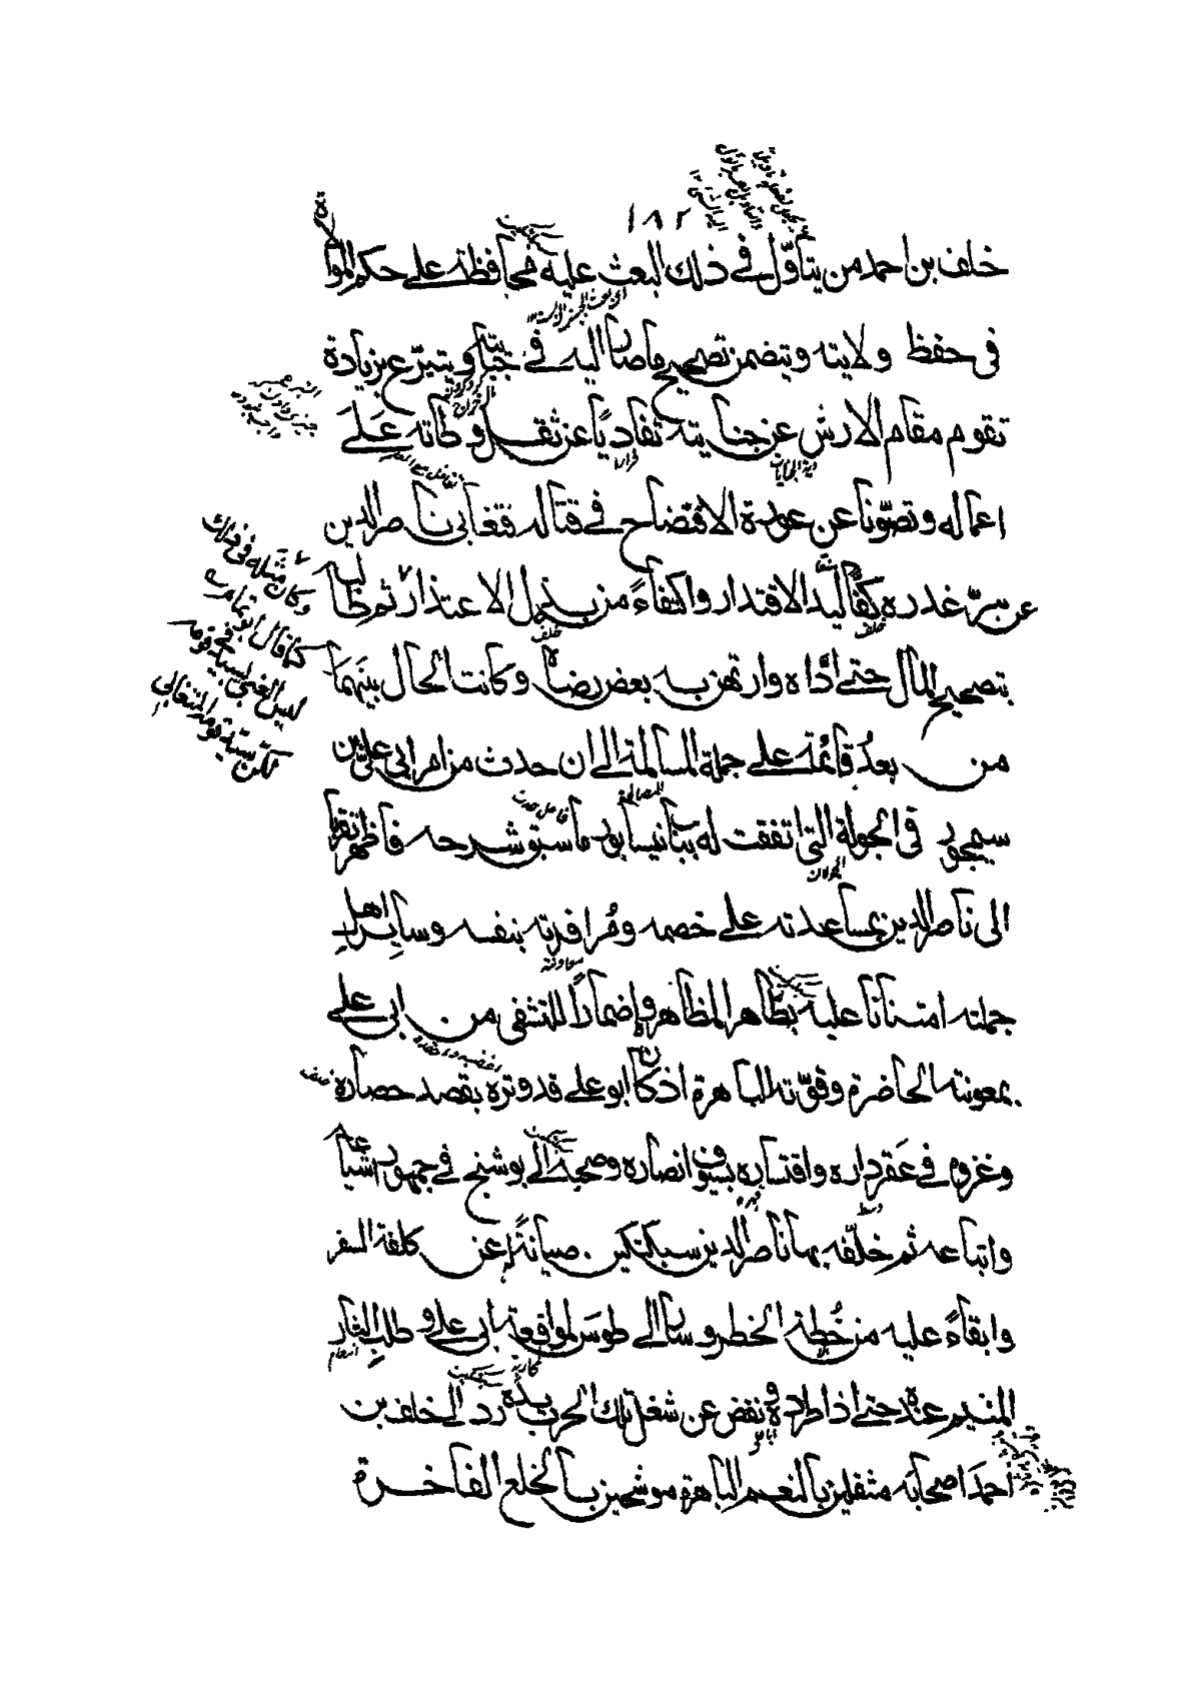 ١٨٢
خلف بن احمد من يتأوّل في ذلك البعث عليه محافظة على حكم الموالاة
في حفظ ولايته ويتضمن تصحيح ما صار اليه في جبايته ويتبرّع بزيادة
تقوم مقام الارش عن جنايته تفاديًا عن ثقل وطأته عَلَى
اعماله وتصوّنا عن عودة الافتضاح في قتاله فتغابى ناصر الدين
عن سرّ غدره بكفالته الاقتدار واكتفاءً من بذل الاعتذار ثم طالبه
بتصحيح المال حتى أدّاه وارتهن به بعض رضاه وكانت الحال بينهما
من بعدُ قائمة على جملة المسالمة الى ان حدث من امر ابى علي بن
سيمجور في الجولة التى اتفقت له بباب نيسابور ما سبق شرحه فاظهر تقربا
الى ناصر الدين بمساعدته على خصمه ومُرافدته بنفسه وسايِر اهل
جملته امتنانا عليه بظاهر المظاهرة وإضمارًا للتشفى من ابى على
بمعونته الحاضرة وقوّته الباهرة اذ كان ابو على قد وتره بقصد حصاره
وغزوه في عَقر داره واقتساره بسيوف انصاره وصحبه الى بوشنج في جمهور اشياعه
واتباعه ثم خلّفه بها ناصر الدين سبكتكين صيانةً له عن كلفة السفر
وابقاءً عليه من خُطة الخطر وسار الى طوسَ لمواقعة ابى على وطلبِ الثار
المنيم عنده حتى اذا طرده ونفض عن شغل تلك الحرب يده رد الى خلف بن
احمدَ اصحابَه مثقلين بالنعم الباهرة موشحين بالخلع الفاخرة
وكان مثله في ذلك
كما قال ابو تمام
ليس الغبى بسيد في قومه
لكن سيد قومه المتغابى